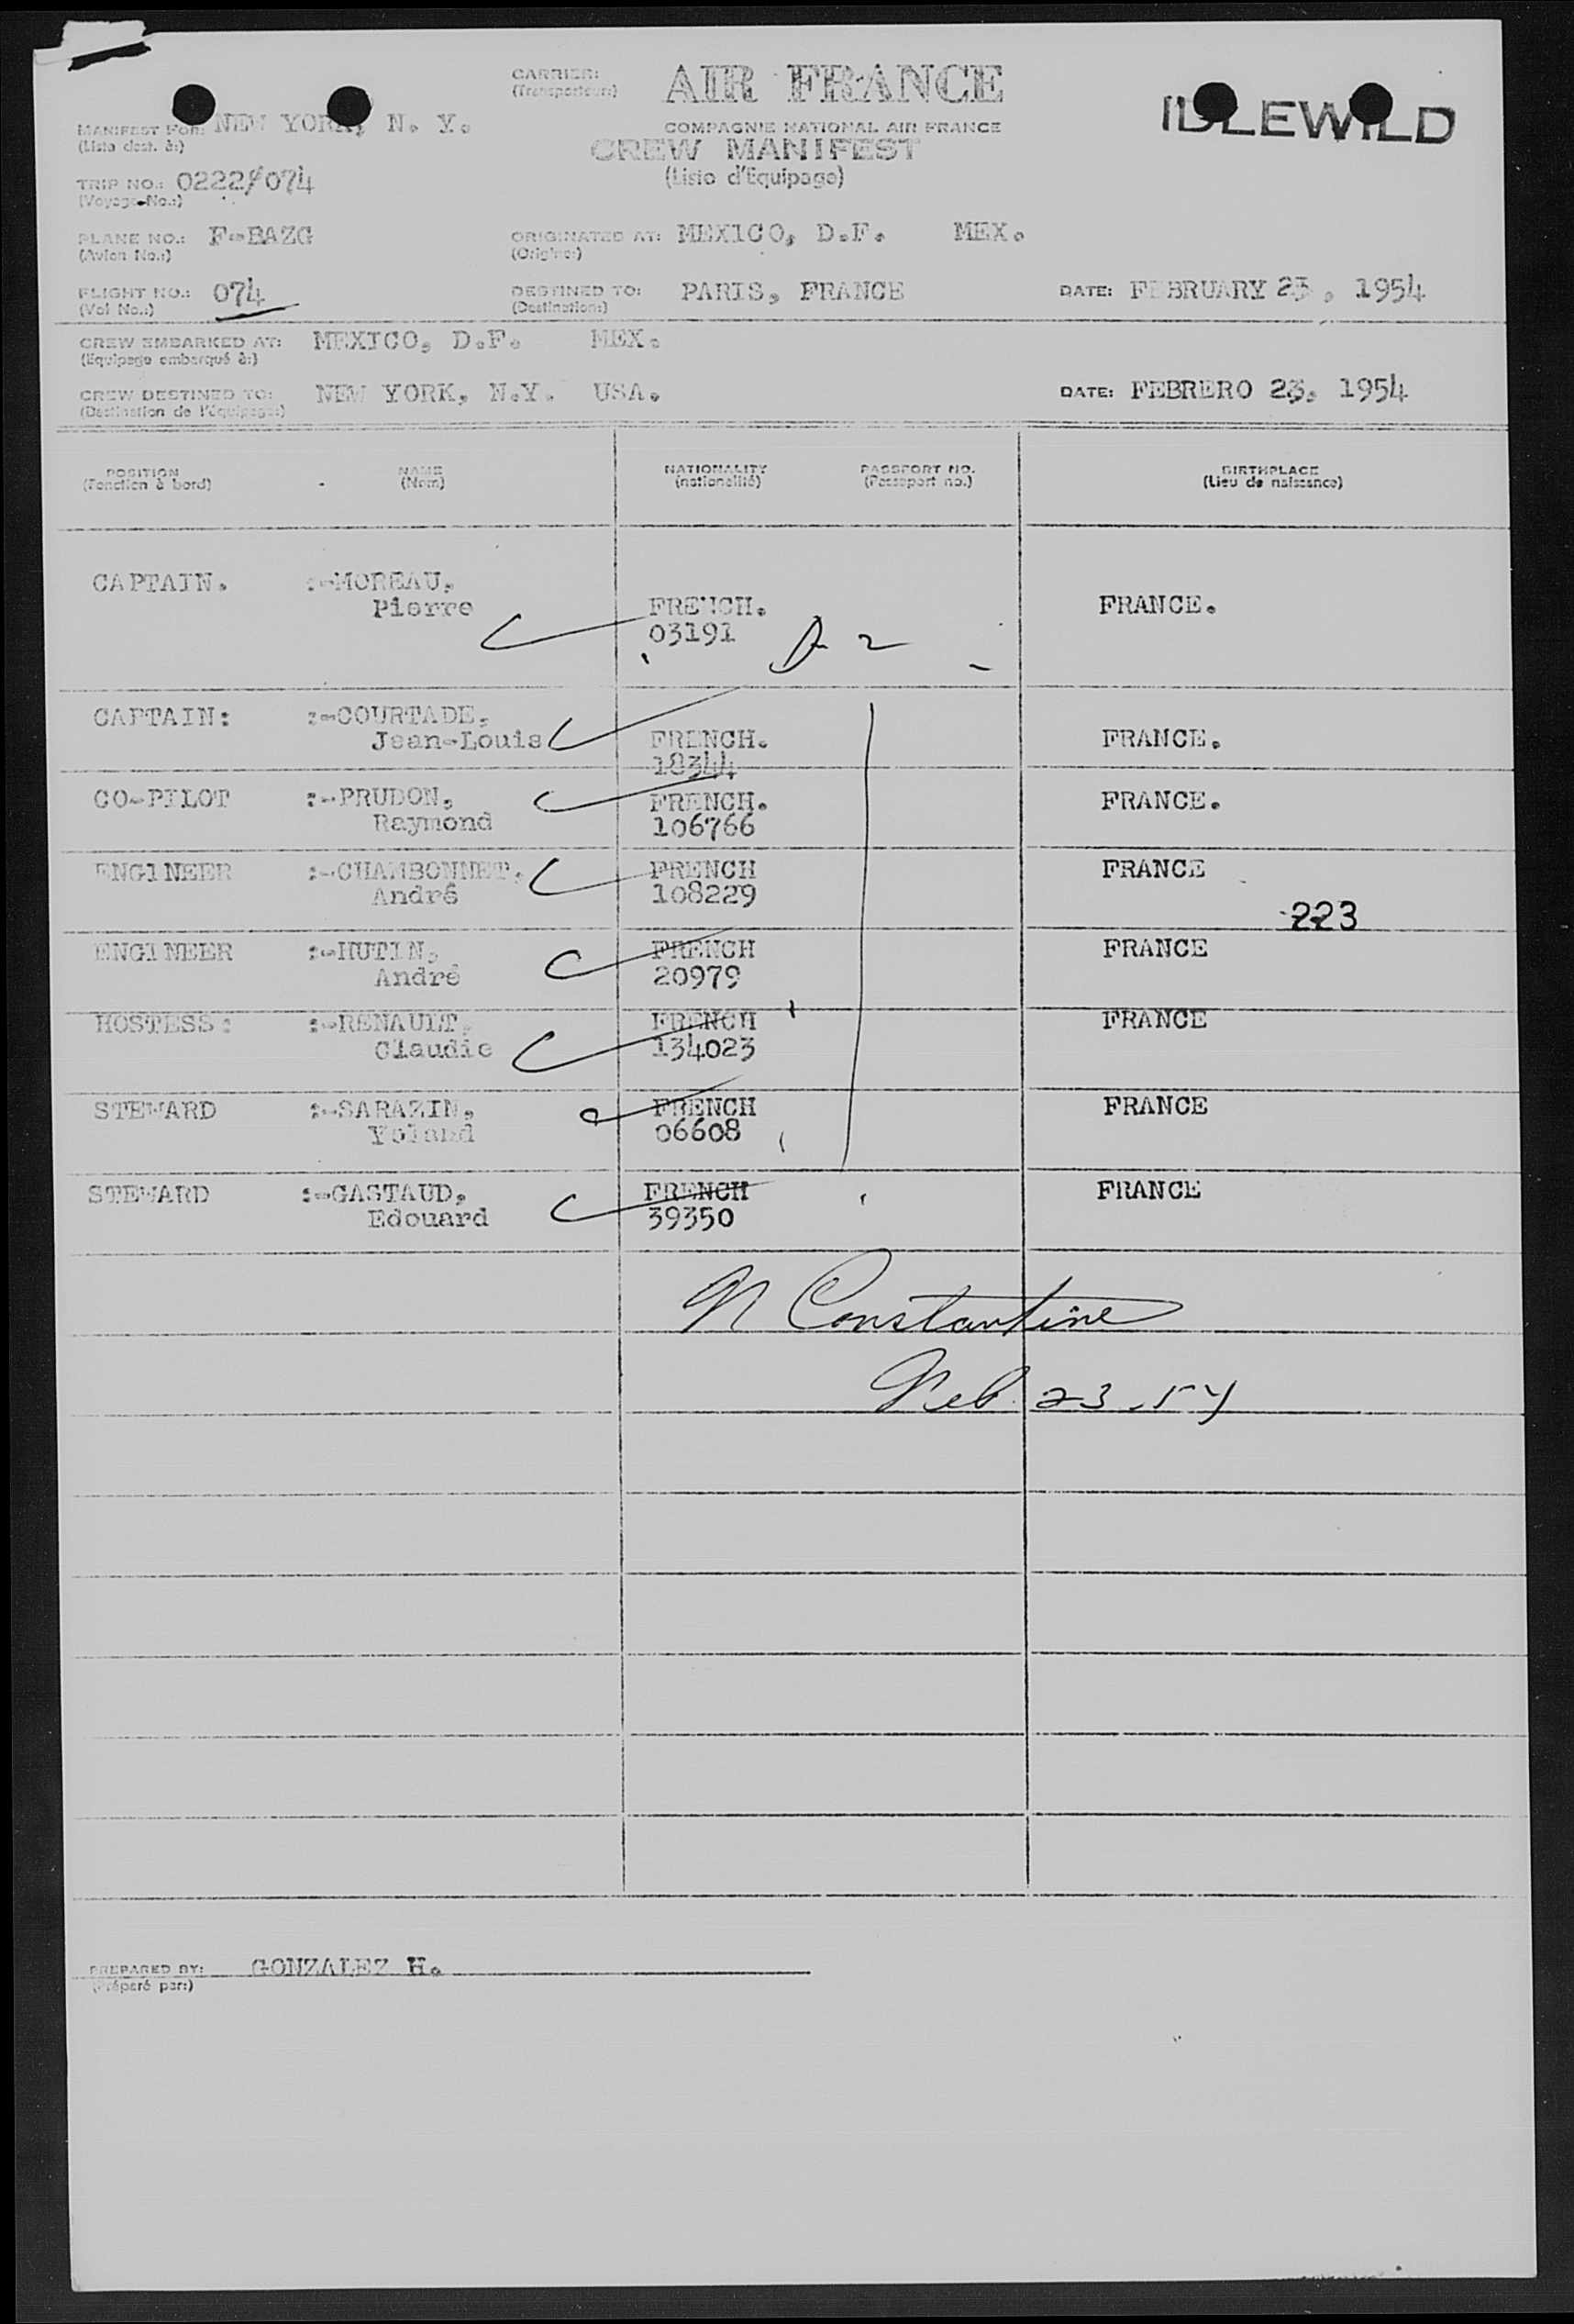 CARRIER: AIR FRANCE
(Transporteur:)
COMPAGNIE NATIONAL AIR FRANCE
IDLEWILD
MANIFEST FOR: NEW YORK, N. Y.
(Liste dest. à:)
CREW MANIFEST
(Liste d'Equipage)
TRIP NO.: 0222/074
(Voyage No.:)
PLANE NO.: F-BAZG
(Avion No.:)
ORIGINATED AT: MEXICO, D.F. MEX.
(Origine:)
FLIGHT NO.: 074
(Vol No.:)
DESTINED TO: PARIS, FRANCE
(Destination:)
DATE: FEBRUARY 23, 1954
CREW EMBARKED AT: MEXICO, D.F. MEX.
(Equipage embarqué à:)
CREW DESTINED TO: NEW YORK, N.Y. USA.
(Destination de l'équipage:)
DATE: FEBRERO 23, 1954
POSITION NAME NATIONALITY PASSPORT NO. BIRTHPLACE
(Fonction à bord) (Nom) (nationalité) (Passeport no.) (Lieu de naissance)
CAPTAIN. :-MOREAU,
Pierre FRENCH. FRANCE.
03191
D 2
CAPTAIN: :-COURTADE,
Jean-Louis FRENCH. FRANCE.
18344
CO-PILOT :-PRUDON, FRENCH. FRANCE.
Raymond 106766
ENG1NEER :-CHAMBONNET, FRENCH FRANCE
André 108229
223
ENG1NEER :-HUTIN, FRENCH FRANCE
André 20979
HOSTESS: :-RENAULT, FRENCH FRANCE
Claudie 134023
STEWARD :-SARAZIN, FRENCH FRANCE
Yoland 06608
STEWARD :-GASTAUD, FRENCH FRANCE
Edouard 39350
N Constantine
Feb. 23. 54
PREPARED BY: GONZALEZ H.
(Préparé par:)